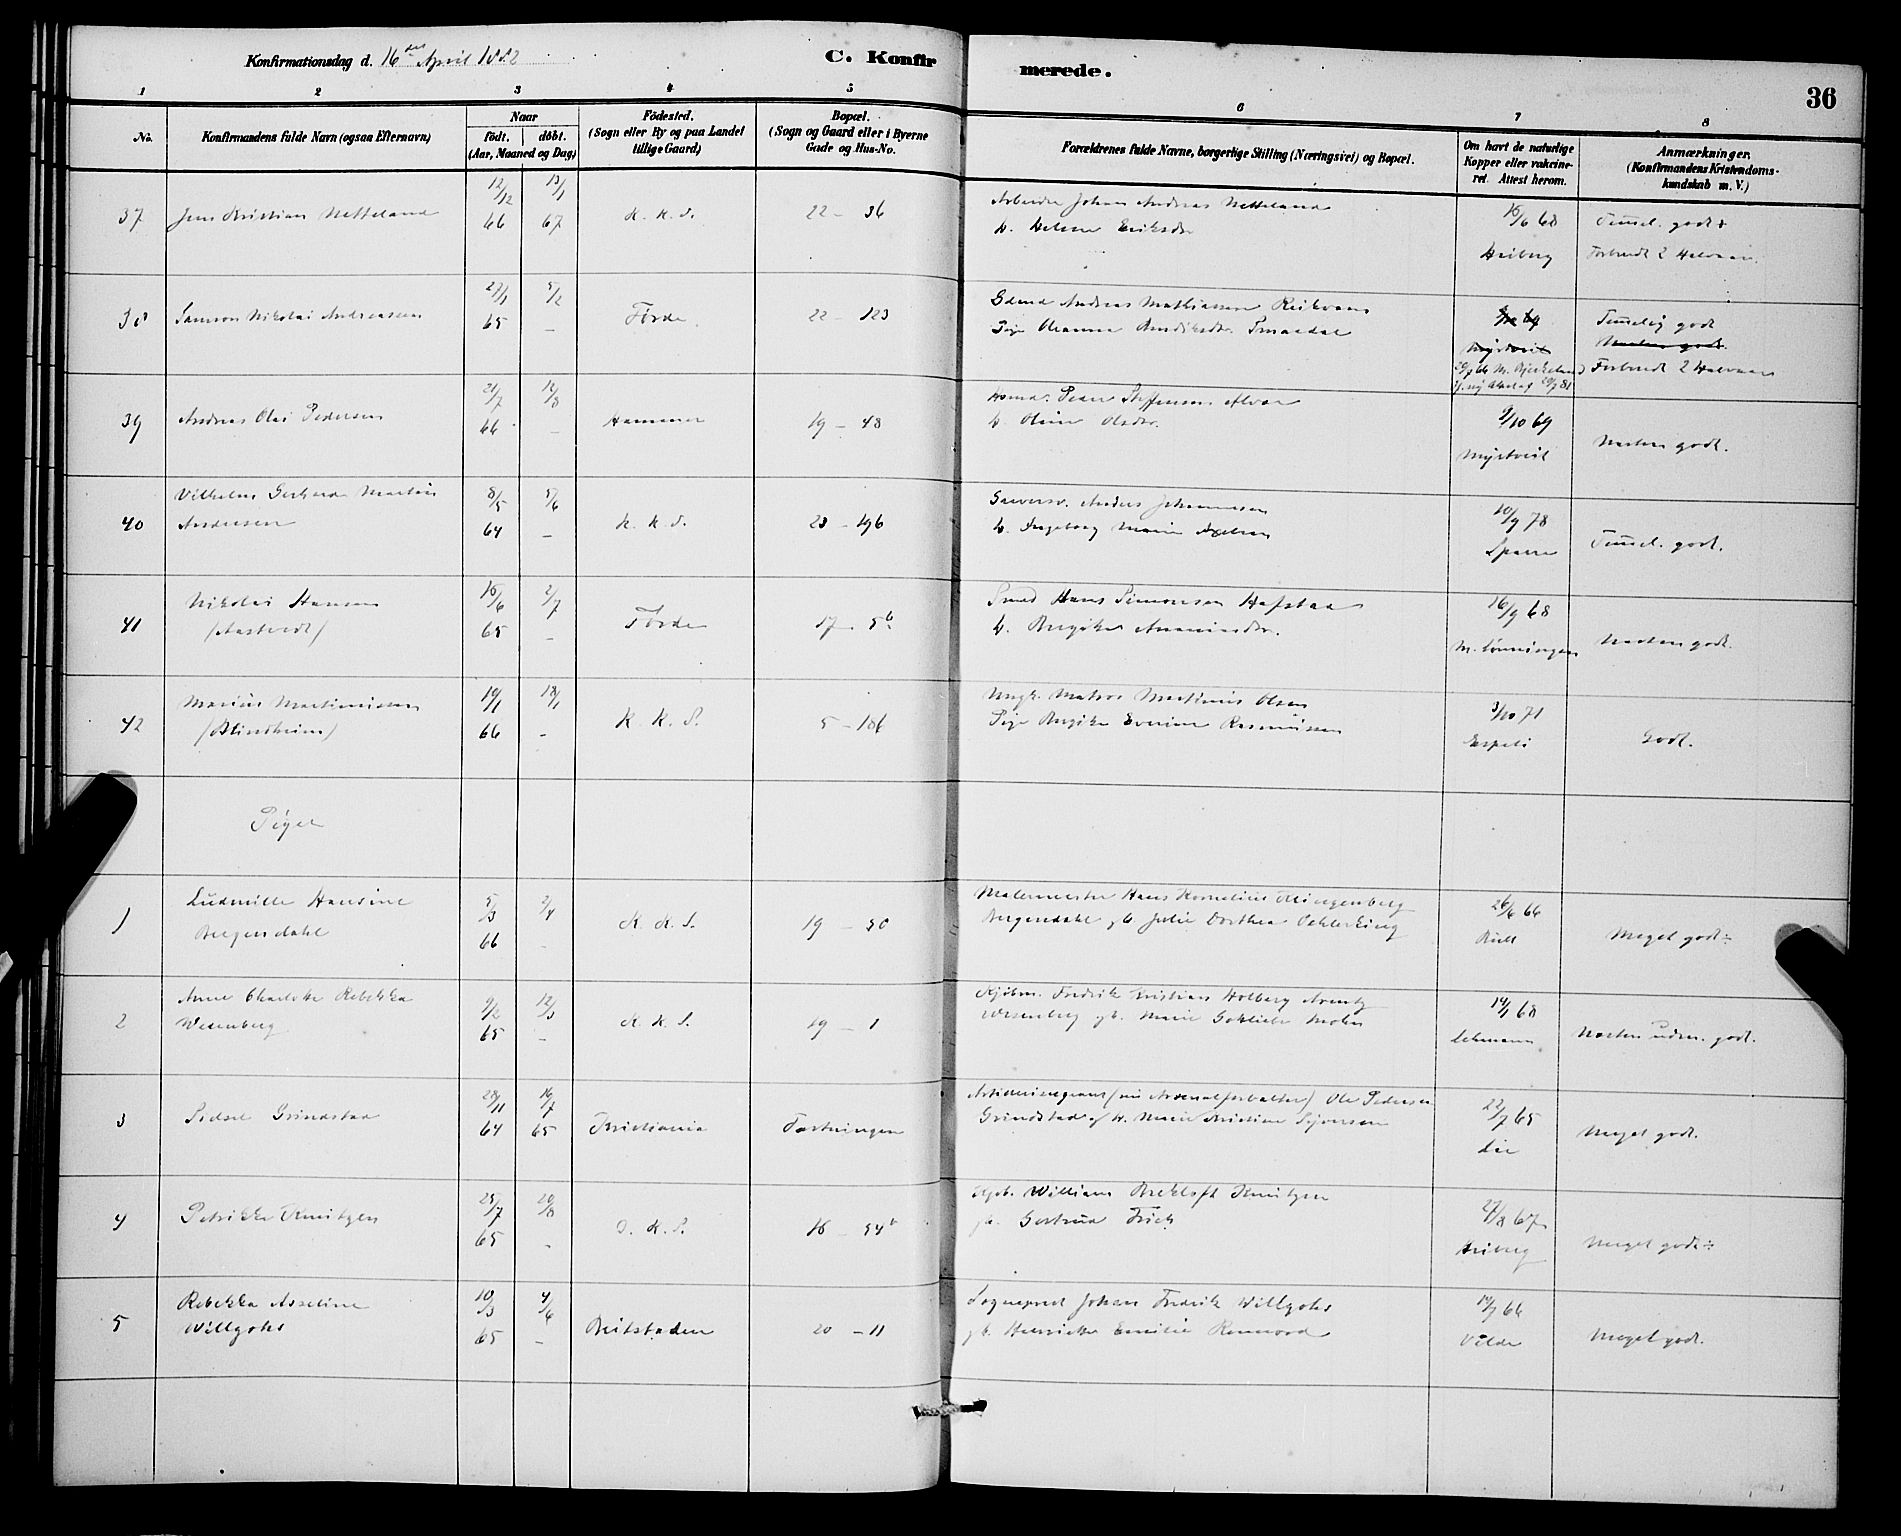 Konfirmationsdag d. 16de April 1882
C. Konfirmerede.
36
1 2 3 4 5 6 7 8
No.
Konfirmandens fulde Navn (ogsaa Efternavn)
Naar
födt. döbt.
(Aar, Maaned og Dag)
Födested.
(Sogn eller By og paa Landet
tillige Gaard)
Bopæl.
(Sogn og Gaard eller i Byerne
Gade og Hus-No.
Forældrenes fulde Navne, borgerlige Stilling (Næringsvei) og Bopæl.
Om havt de naturlige
Kopper eller vakcine-
ret. Attest herom.
Anmærkninger.
(Konfirmandens Kristendoms-
kundskab m. V.)
37
Jens Kristian Netteland
12/12 66
13/1 67
K. K. S.
22 - 36
Arbeider Johan Andreas Netteland
h. Helene Eriksdr
15/6 68
Heiberg
Temmel. godt
Forberedt 2 Halvaar.
38
Samson Nikolai Andreassen
27/1 65
5/2 -
Förde
22 - 123
Andreas Mathiassen
Pige Oleanna
Temmelig godt
Næsten godt.
Forberedt 2 Halvaar
39
Andreas Olai Pedersen
21/7 66
12/8 -
Hammer
19 - 48
Peder Steffensen
h. Oline Olsdr.
9/10 69
Myrtveit
Næsten godt.
40
Vilhelm Gerhard Martin
Andersen
8/5 64
5/6 -
K. K. S.
23 - 196
Anders Johannesen
h. Ingeborg Marie Axelsen
10/9 78
Sparre
Temmel. godt.
41
Nikolai Hansen
(Aastvedt)
15/6 65
2/7 -
Förde
17 - 5b
Smed Hans Simonsen Hafstad
h. Birgithe
16/9 68
M. Lönningen
Næsten godt.
42
Marius Martinussen
(Blindheim)
10/1 66
18/1 -
K. K. S.
5 - 186
Ungk. Matros Martinus Olsen
Pige Rasmussen
3/10 71
Espeli
Godt.
Piger
1
Ludmille Hansine
Bergendahl
5/3 66
2/4 -
K. K. S.
19 - 30
Malermester Hans Kornelius Klingenberg
Bergendahl gb. Julie Dorthea
26/6 66
Meget godt ÷
2
Anne Charlotte Rebekka
Wesenberg
9/2 65
12/3 -
K. K. S.
19 - 1
Kjöbm. Fredrik Kristian Holberg Arentz
Wesenberg gb. Marie Gotliebe Mohr
14/1 68
Lehmann
Næsten udm. godt.
3
Sidsel Grindstad
28/11 64
16/7 65
Kristiania
Fæstningen
Ole Pedersen
Grindstad og H. Marie Kristine Syvertsen
22/7 65
Lie
Meget godt.
4
Petrikke Knutzen
25/7 65
20/8 -
D. K. S.
16 - 54b
William Knutzen
gb. Gertrud Frich
27/8 67
Heiberg
Meget godt ÷
5
Rebekka Asseline
Willgohs
10/3 65
4/6 -
Beitstaden
20 - 11
Sogneprest Johan Fredrik Willgohs
gb. Henrikke Emilie
66
Meget godt.